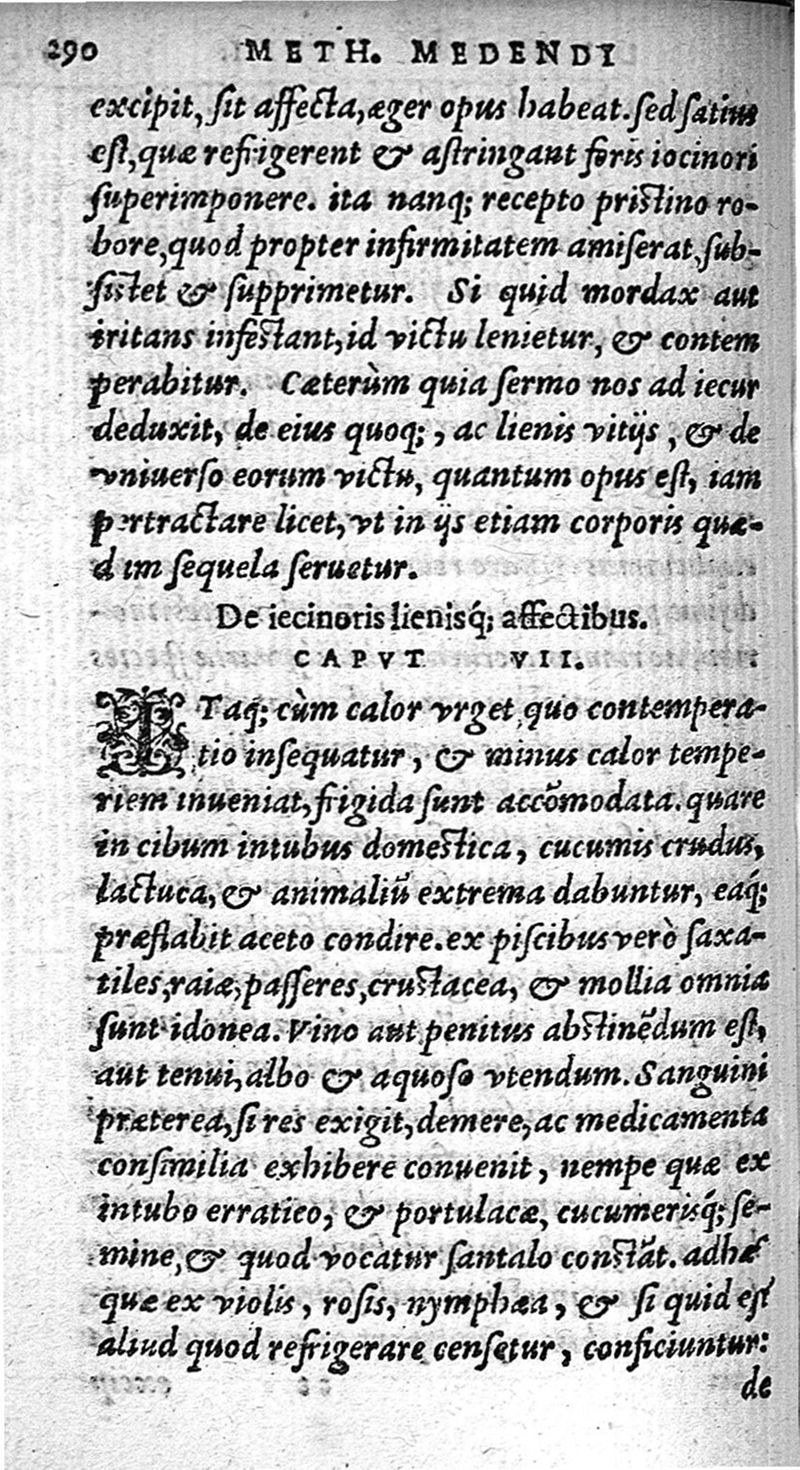 290 METH. MEDENDI
excipit, sit affecta, æger opus habeat. sed satius
est, quæ refrigerent & astringant foris iocinori
superimponere. ita nanq; recepto pristino ro-
bore, quod propter infirmitatem amiserat, sub-
sistet & supprimetur. Si quid mordax aut
iritans infestant, id victu lenietur, & contem
perabitur. Cæterùm quia sermo nos ad iecur
deduxit, de eius quoq;, ac lienis vitijs, & de
vniuerso eorum victu, quantum opus est, iam
pertractare licet, vt in ijs etiam corporis quæ-
dam sequela seruetur.
De iecinoris lienisq́; affectibus.
CAPVT VII.
ITaq; cùm calor vrget, quo contempera-
tio insequatur, & minus calor tempe-
riem inueniat, frigida sunt accõmodata. quare
in cibum intubus domestica, cucumis crudus,
lactuca, & animaliũ extrema dabuntur, eaq́;
præstabit aceto condire. ex piscibus verò saxa-
tiles, raiæ, passeres, crustacea, & mollia omnia
sunt idonea. Vino aut penitus abstinẽdum est,
aut tenui, albo & aquoso vtendum. Sanguini
præterea, si res exigit, demere, ac medicamenta
consimilia exhibere conuenit, nempe quæ ex
intubo erratico, & portulacæ, cucumerisq́; se-
mine, & quod vocatur santalo constãt. adhæc
quæ ex violis, rosis, nymphæa, & si quid est
aliud quod refrigerare censetur, conficiuntur:
de